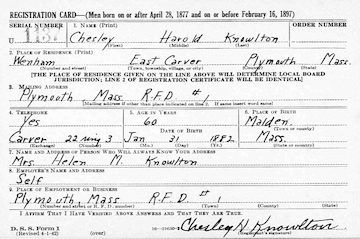 REGISTRATION CARD—(Men born on or after April 28, 1877 and on or before February 16, 1897)
SERIAL NUMBER 1. NAME (Print) ORDER NUMBER
U Chesley Harold Knowlton
(First) (Middle) (Last)
2. PLACE OF RESIDENCE (Print)
Wenham East Carver Plymouth Mass.
(Number and street) (Town, township, village, or city) (County) (State)
[THE PLACE OF RESIDENCE GIVEN ON THE LINE ABOVE WILL DETERMINE LOCAL BOARD
JURISDICTION; LINE 2 OF REGISTRATION CERTIFICATE WILL BE IDENTICAL]
3. MAILING ADDRESS
Plymouth, Mass R.F.D. #1
[Mailing address if other than place indicated on line 2. If same insert word same]
4. TELEPHONE 5. AGE IN YEARS 6. PLACE OF BIRTH
Yes 60 Malden,
DATE OF BIRTH (Town or county)
Carver 22 ring 3 Jan 31 1882 Mass.
(Exchange) (Number) (Mo.) (Day) (Yr.) (State or country)
7. NAME AND ADDRESS OF PERSON WHO WILL ALWAYS KNOW YOUR ADDRESS
Mrs. Helen M. Knowlton
8. EMPLOYER'S NAME AND ADDRESS
Self
9. PLACE OF EMPLOYMENT OR BUSINESS
Plymouth, Mass R.F.D.
(Number and street or R. F. D. number) (Town) (County) (State)
I AFFIRM THAT I HAVE VERIFIED ABOVE ANSWERS AND THAT THEY ARE TRUE.
D. S. S. Form 1
(Revised 4-1-42) (over) Chesley H. Knowlton